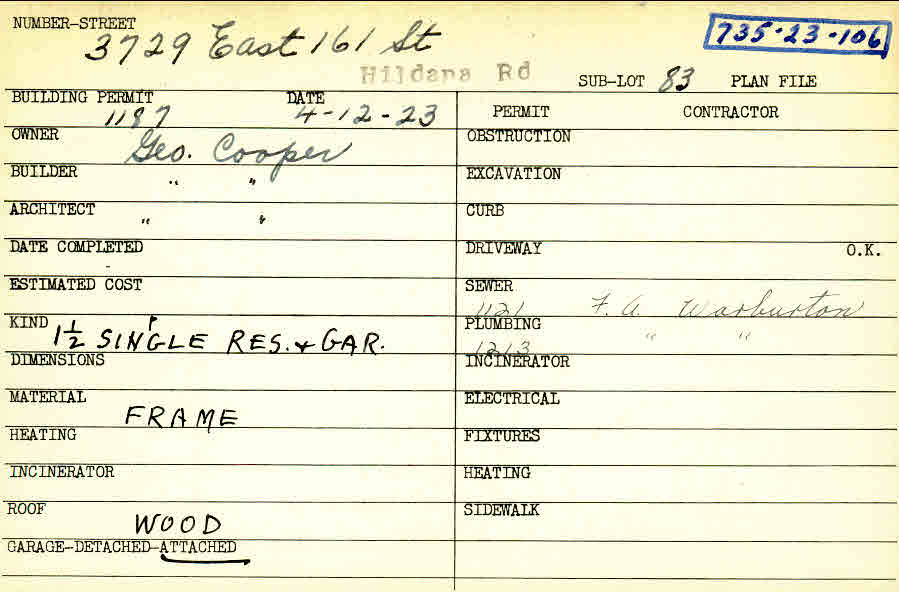 NUMBER-STREET
3729 East 161 St
735-23-106
Hildana Rd
SUB-LOT 83 PLAN FILE
BUILDING PERMIT DATE
1187 4-12-23
PERMIT CONTRACTOR
OWNER Geo. Cooper
OBSTRUCTION
BUILDER " "
EXCAVATION
ARCHITECT " "
CURB
DATE COMPLETED
DRIVEWAY O.K.
ESTIMATED COST
SEWER
1121 F. A. Warburton
KIND
1 1/2 SINGLE RES. & GAR.
PLUMBING
1213 " "
DIMENSIONS
INCINERATOR
MATERIAL
FRAME
ELECTRICAL
HEATING
FIXTURES
INCINERATOR
HEATING
ROOF
WOOD
SIDEWALK
GARAGE-DETACHED-ATTACHED